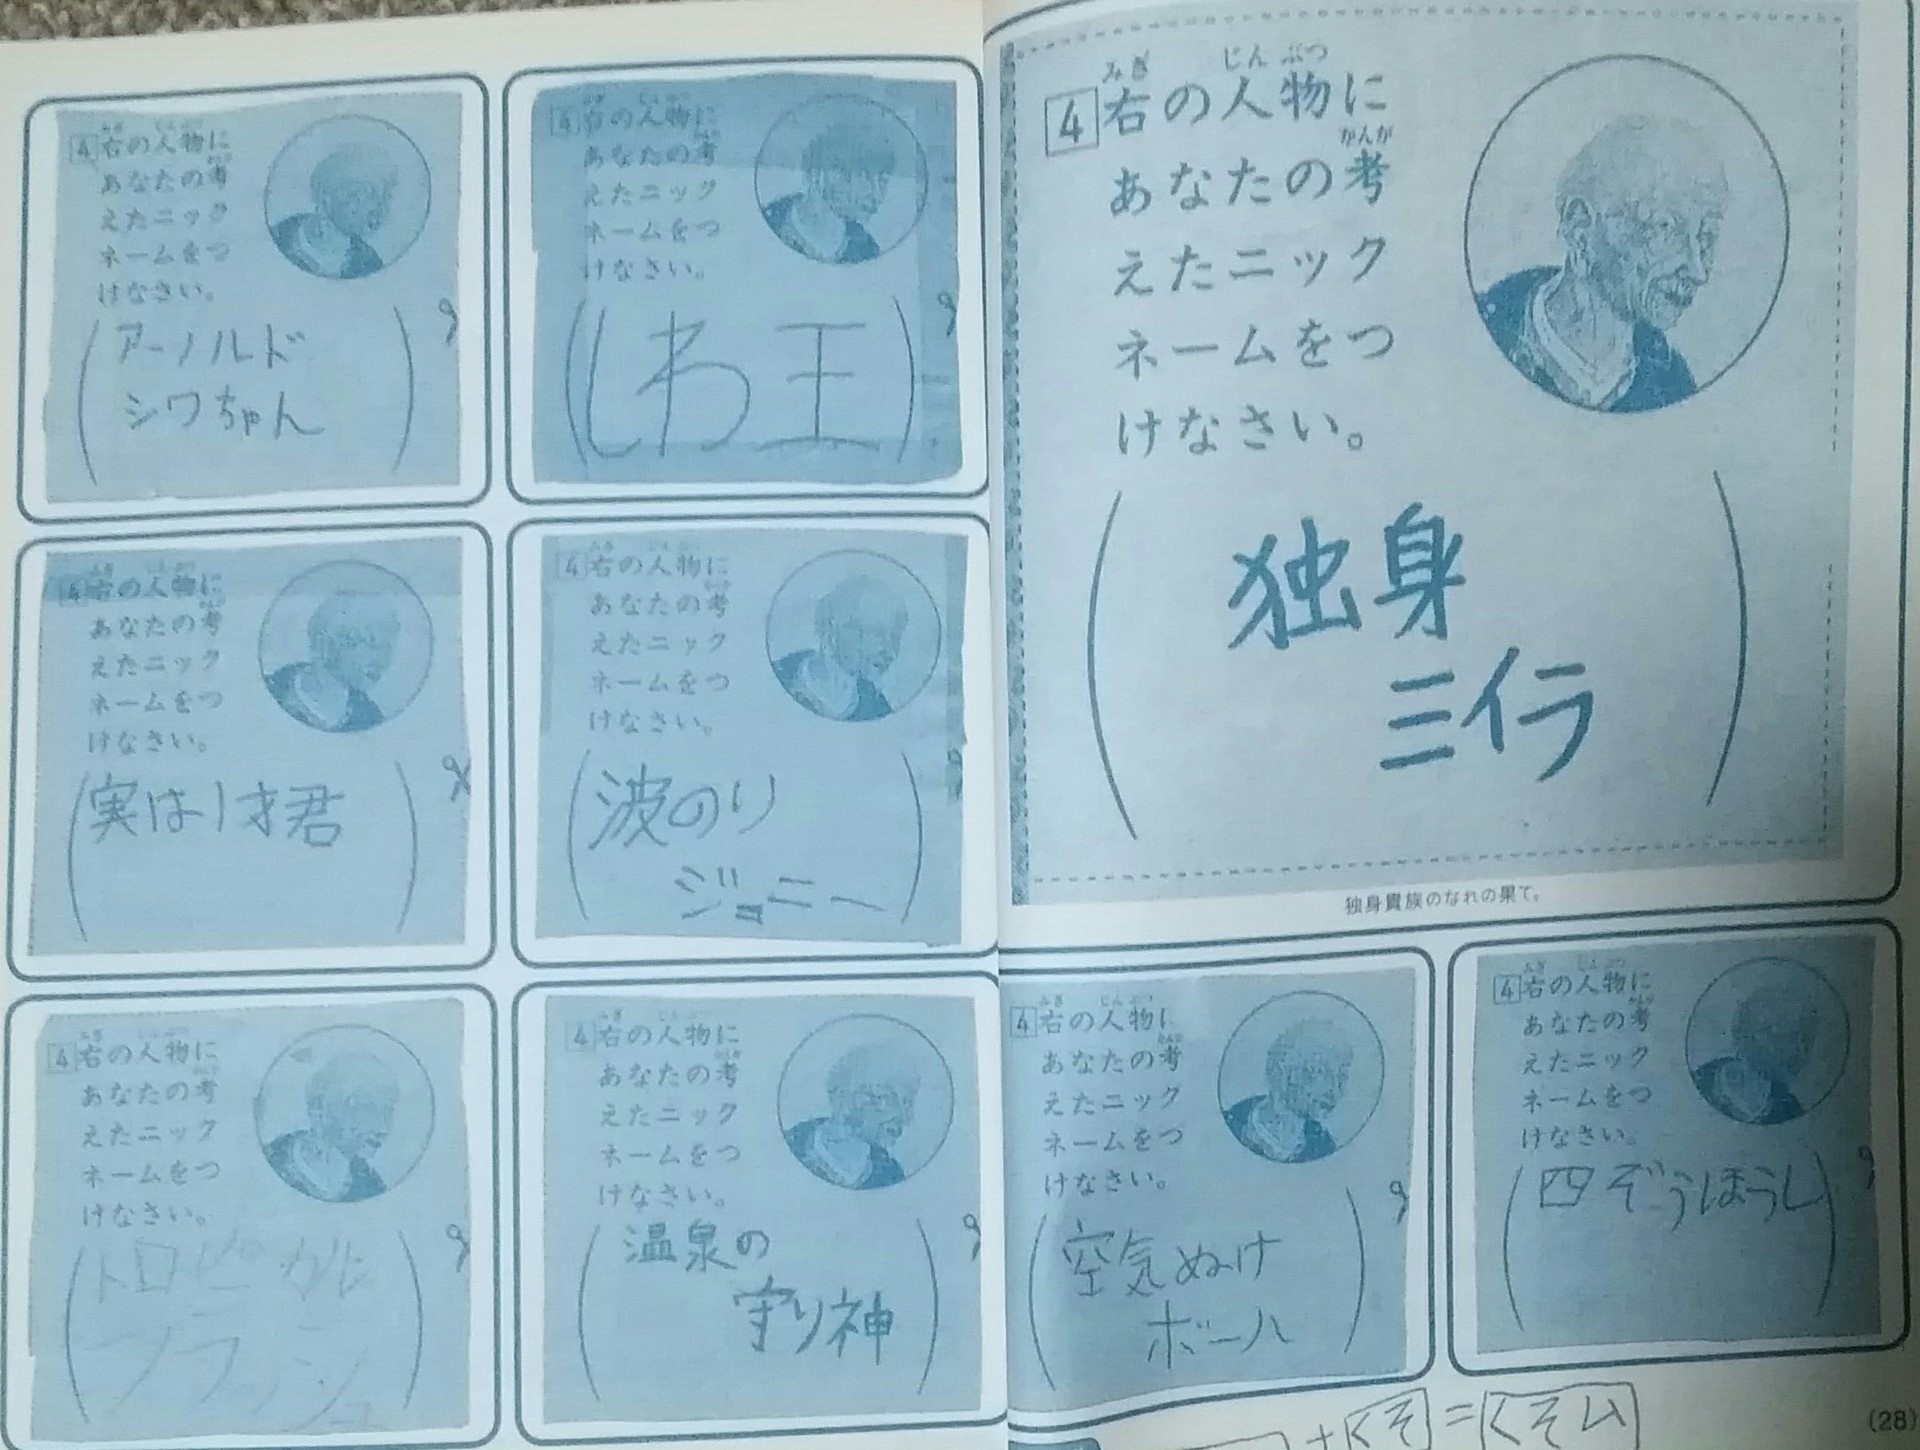 4 右の人物に
あなたの考
えたニック
ネームをつ
けなさい。
みぎ じんぶつ
かんが
独身
ミイラ
独身貴族のなれの果て。
4 右の人物に
あなたの考
えたニック
ネームをつ
けなさい。
空気ぬけ
ボール
4 右の人物に
あなたの考
えたニック
ネームをつ
けなさい。
四ぞうほうし
4 右の人物に
あなたの考
えたニック
ネームをつ
けなさい。
アーノルド
シワちゃん
4 右の人物に
あなたの考
えたニック
ネームをつ
けなさい。
しわ王
4 右の人物に
あなたの考
えたニック
ネームをつ
けなさい。
実は1才君
4 右の人物に
あなたの考
えたニック
ネームをつ
けなさい。
波のり
ジョニー
4 右の人物に
あなたの考
えたニック
ネームをつ
けなさい。
トロピカル
フラッシュ
4 右の人物に
あなたの考
えたニック
ネームをつ
けなさい。
温泉の
守り神
+くそ=くそム
(28)